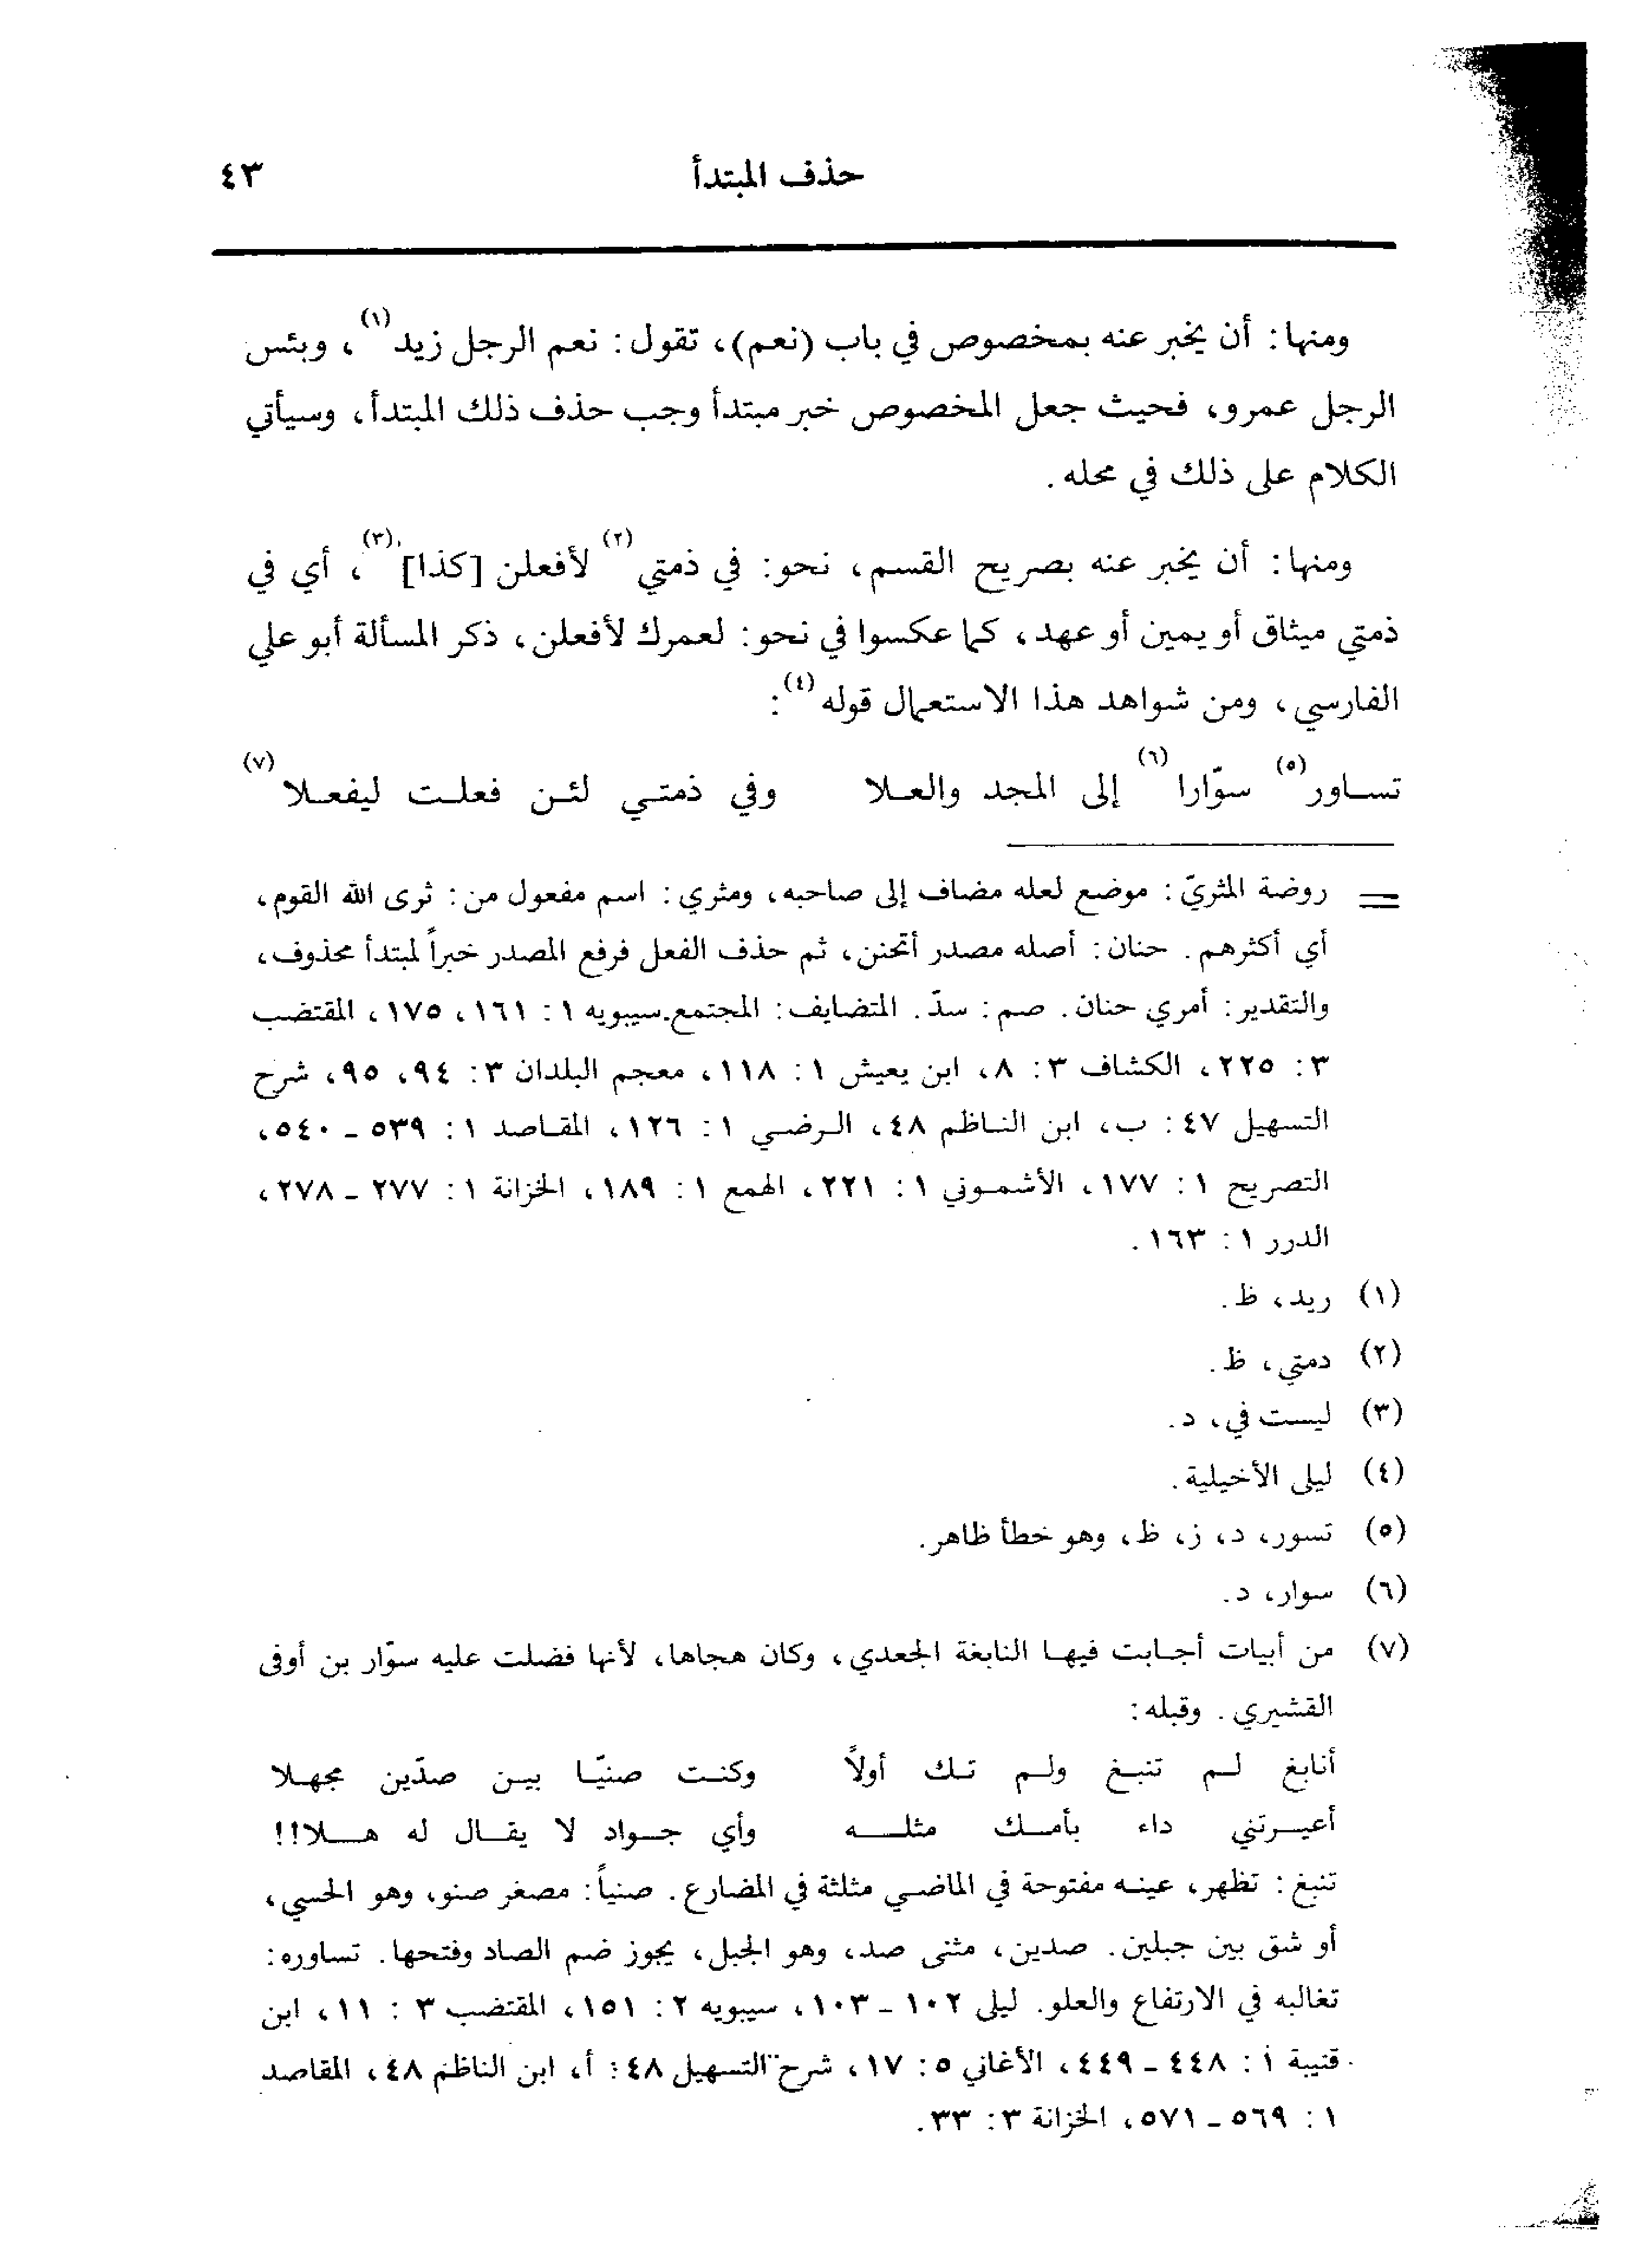 حذف المبتدأ ٤٣
ومنها: أن يخبر عنه بمخصوص في باب (نعم)، تقول: نعم الرجل زيد(١)، وبئس
الرجل عمرو، فحيث جعل المخصوص خبر مبتدأ وجب حذف ذلك المبتدأ، وسيأتي
الكلام على ذلك في محله.
ومنها: أن يخبر عنه بصريح القسم، نحو: في ذمتي(٢) لأفعلن [كذا](٣)، أي في
ذمتي ميثاق أو يمين أو عهد، كما عكسوا في نحو: لعمرك لأفعلن، ذكر المسألة أبو علي
الفارسي، ومن شواهد هذا الاستعمال قوله(٤):
تساور(٥) سوّارا(٦) إلى المجد والعلا وفي ذمتي لئن فعلت ليفعلا(٧)
= روضة المثريّ: موضع لعله مضاف إلى صاحبه، ومثري: اسم مفعول من: ثرى الله القوم،
أي أكثرهم. حنان: أصله مصدر أتحنن، ثم حذف الفعل فرفع المصدر خبراً لمبتدأ محذوف،
والتقدير: أمري حنان. صم: سدّ. المتضايف: المجتمع. سيبويه ١: ١٦١، ١٧٥، المقتضب
٣: ٢٢٥، الكشاف ٣: ٨، ابن يعيش ١: ١١٨، معجم البلدان ٣: ٩٤، ٩٥، شرح
التسهيل ٤٧: ب، ابن الناظم ٤٨، الرضي ١: ١٢٦، المقاصد ١: ٥٣٩ - ٥٤٠،
التصريح ١: ١٧٧، الأشموني ١: ٢٢١، الهمع ١: ١٨٩، الخزانة ١: ٢٧٧ - ٢٧٨،
الدرر ١: ١٦٣.
(١) ريد، ظ.
(٢) دمتي، ظ.
(٣) ليست في، د.
(٤) ليلى الأخيلية.
(٥) تسور، د، ز، ظ، وهو خطأ ظاهر.
(٦) سوار، د.
(٧) من أبيات أجابت فيها النابغة الجعدي، وكان هجاها، لأنها فضلت عليه سوّار بن أوفى
القشيري. وقبله:
أنابغ لم تنبغ ولم تك أولاً وكنت صنيّا بين صدّين مجهلا
أعيرتني داء بأمك مثله وأي جواد لا يقال له هلا!!
تنبغ: تظهر، عينه مفتوحة في الماضي مثلثة في المضارع. صنياً: مصغر صنو، وهو الحسي،
أو شق بين جبلين. صدين، مثنى صد، وهو الجبل، يجوز ضم الصاد وفتحها. تساوره:
تغالبه في الارتفاع والعلو. ليلى ١٠٢ - ١٠٣، سيبويه ٢: ١٥١، المقتضب ٣: ١١، ابن
قتيبة أ: ٤٤٨ - ٤٤٩، الأغاني ٥: ١٧، شرح التسهيل ٤٨: أ، ابن الناظم ٤٨، المقاصد
١: ٥٦٩ - ٥٧١، الخزانة ٣: ٣٣.